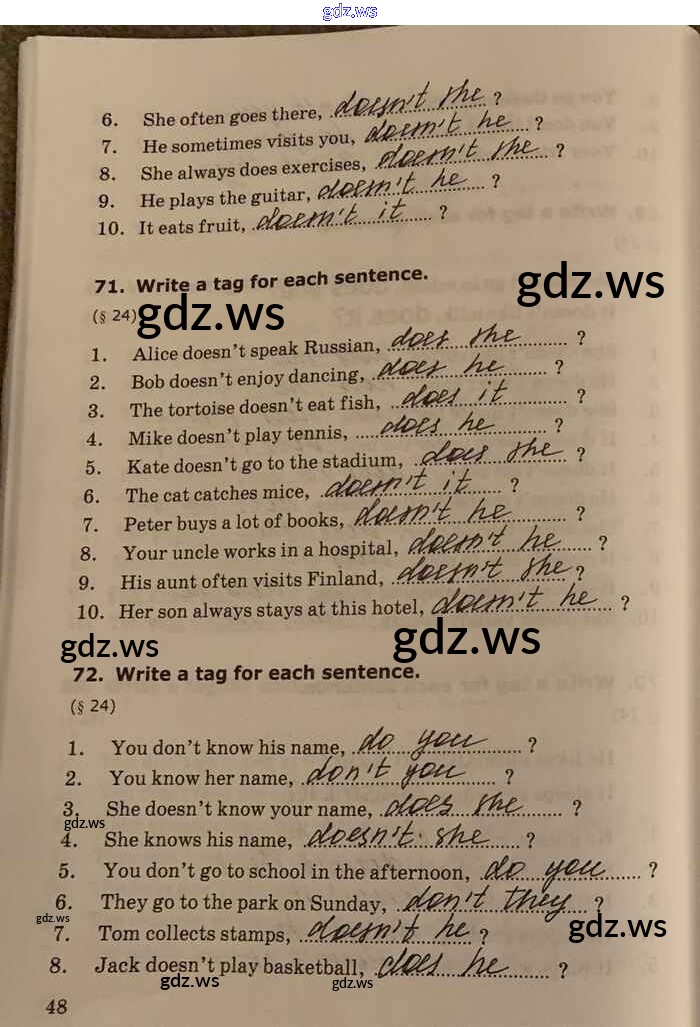 gdz.ws
6. She often goes there, doesn't she ?
7. He sometimes visits you, doesn't he ?
8. She always does exercises, doesn't she ?
9. He plays the guitar, doesn't he ?
10. It eats fruit, doesn't it ?
71. Write a tag for each sentence.
gdz.ws
(§ 24) gdz.ws
1. Alice doesn't speak Russian, does she ?
2. Bob doesn't enjoy dancing, does he ?
3. The tortoise doesn't eat fish, does it ?
4. Mike doesn't play tennis, does he ?
5. Kate doesn't go to the stadium, does she ?
6. The cat catches mice, doesn't it ?
7. Peter buys a lot of books, doesn't he ?
8. Your uncle works in a hospital, doesn't he ?
9. His aunt often visits Finland, doesn't she ?
10. Her son always stays at this hotel, doesn't he ?
gdz.ws gdz.ws
72. Write a tag for each sentence.
(§ 24)
1. You don't know his name, do you ?
2. You know her name, don't you ?
3. She doesn't know your name, does she ?
gdz.ws
4. She knows his name, doesn't she ?
5. You don't go to school in the afternoon, do you ?
6. They go to the park on Sunday, don't they ?
gdz.ws gdz.ws
7. Tom collects stamps, doesn't he ?
8. Jack doesn't play basketball, does he ?
gdz.ws gdz.ws
48